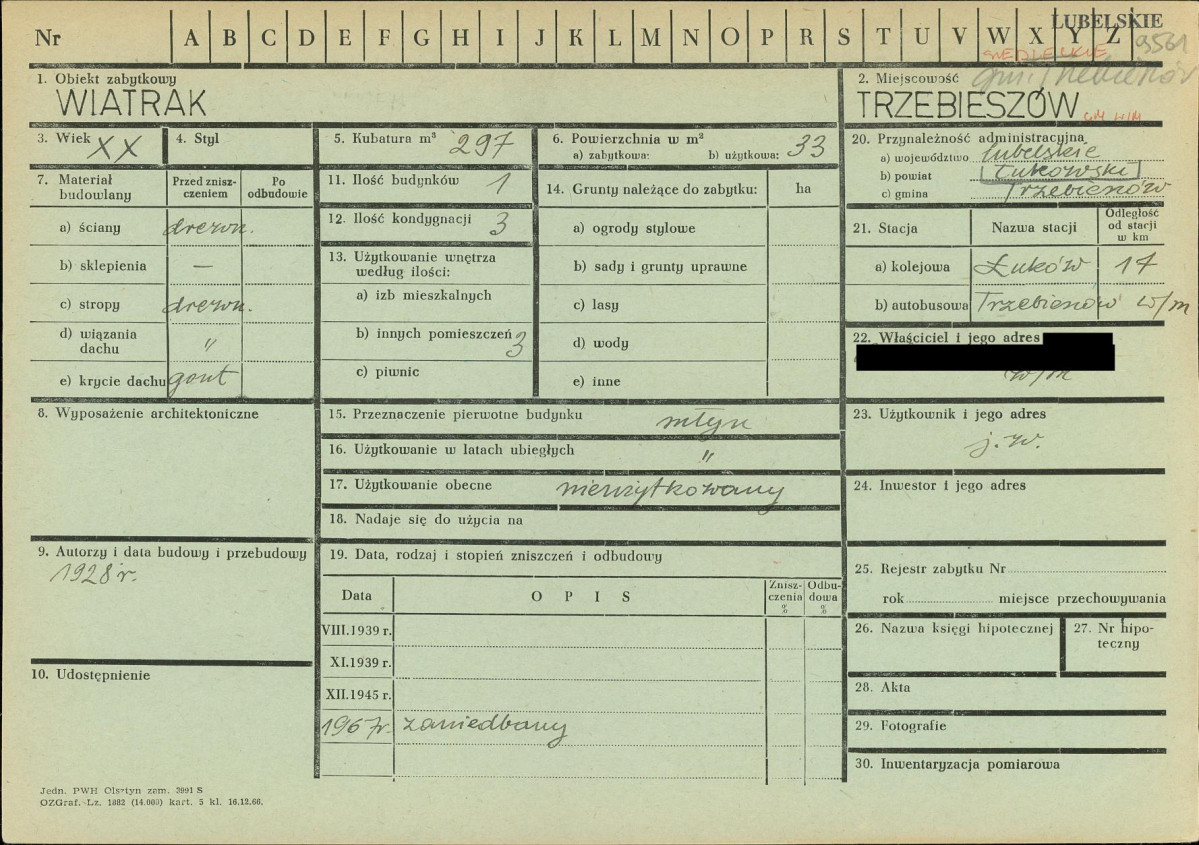 LUBELSKIE
Nr A B C D E F G H I J K L M N O P R S T U V W X Y Z 9561
SIEDLECKIE
gm. Trzebieszów
1. Obiekt zabytkowy
WIATRAK
2. Miejscowość
TRZEBIESZÓW
GM W/M
3. Wiek XX
4. Styl
5. Kubatura m³ 297
6. Powierzchnia w m²
a) zabytkowa: b) użytkowa: 33
7. Materiał budowlany
Przed zniszczeniem
Po odbudowie
a) ściany drewn.
b) sklepienia —
c) stropy drewn.
d) wiązania dachu "
e) krycie dachu gont
8. Wyposażenie architektoniczne
9. Autorzy i data budowy i przebudowy
1928 r.
10. Udostępnienie
11. Ilość budynków 1
12. Ilość kondygnacji 3
13. Użytkowanie wnętrza
według ilości:
a) izb mieszkalnych
b) innych pomieszczeń 3
c) piwnic
14. Grunty należące do zabytku: ha
a) ogrody stylowe
b) sady i grunty uprawne
c) lasy
d) wody
e) inne
15. Przeznaczenie pierwotne budynku młyn
16. Użytkowanie w latach ubiegłych "
17. Użytkowanie obecne nieużytkowany
18. Nadaje się do użycia na
19. Data, rodzaj i stopień zniszczeń i odbudowy
Data OPIS Zniszczenia % Odbudowa %
VIII.1939 r.
XI.1939 r.
XII.1945 r.
1967r. zaniedbany
20. Przynależność administracyjna
a) województwo lubelskie
b) powiat Łukowski
c) gmina Trzebieszów
21. Stacja Nazwa stacji Odległość od stacji w km
a) kolejowa Łuków 17
b) autobusowa Trzebieszów w/m
22. Właściciel i jego adres
w/m
23. Użytkownik i jego adres
j.w.
24. Inwestor i jego adres
25. Rejestr zabytku Nr
rok miejsce przechowywania
26. Nazwa księgi hipotecznej
27. Nr hipoteczny
28. Akta
29. Fotografie
30. Inwentaryzacja pomiarowa
Jedn. PWH Olsztyn zam. 3991 S
OZGraf. Lz. 1882 (14.000) kart. 5 kl. 16.12.66.